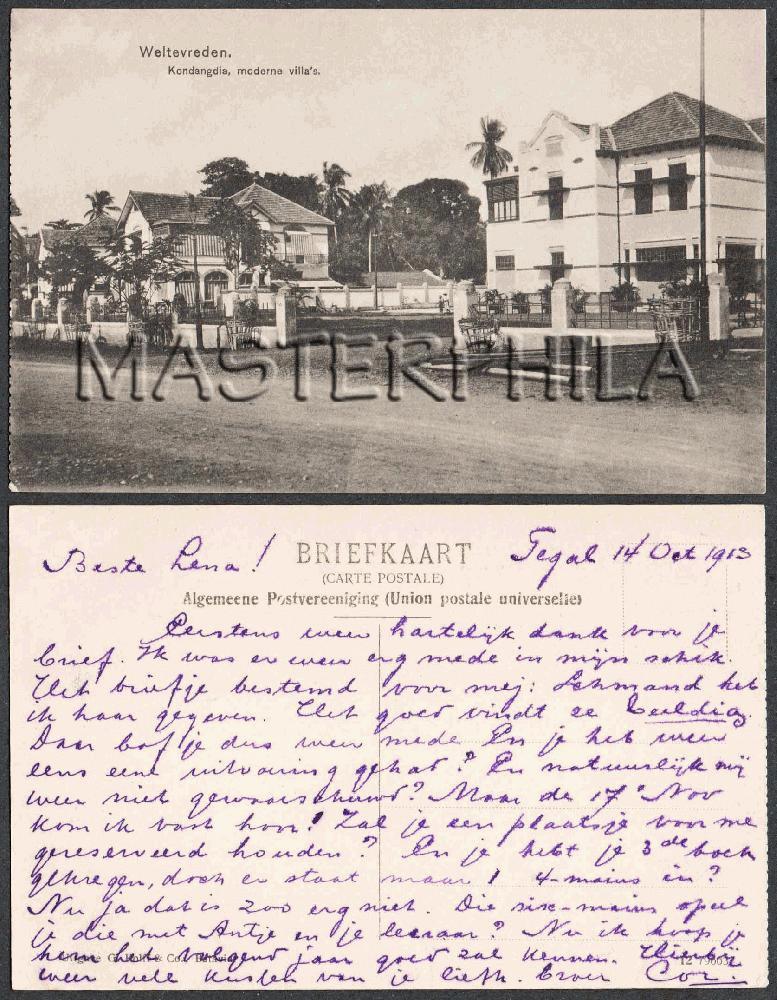 Weltevreden.
Kondangdia, moderne villa's.
MASTERPHILA
BRIEFKAART
(CARTE POSTALE)
Algemeene Postvereeniging (Union postale universelle)
Beste Lena!
Tegal 14 Oct 1913
Eerstens weer hartelijk dank voor je
brief. Ik was er weer erg mede in mijn schik.
Het briefje bestemd voor mej: Lehmand heb
ik haar gegeven. Het goed vindt ze beeldig
Daar bof je dus weer mede En je heb weer
eens eene uitvoering gehad? En natuurlijk mij
weer niet gewaarschuwd? Maar de 17e Nov
kom ik vast hoor! Zal je een plaatsje voor me
gereserveerd houden? En je hebt je 3de boek
gekregen, doch er staat maar 1 4-mains in?
Nu ja dat is zoo erg niet. Die six-mains speel
je die met Antje en je leeraar? Nu ik hoop je
hem het volgend jaar goed zal kennen. Hierbij
weer vele kussen van je liefh. Cor.